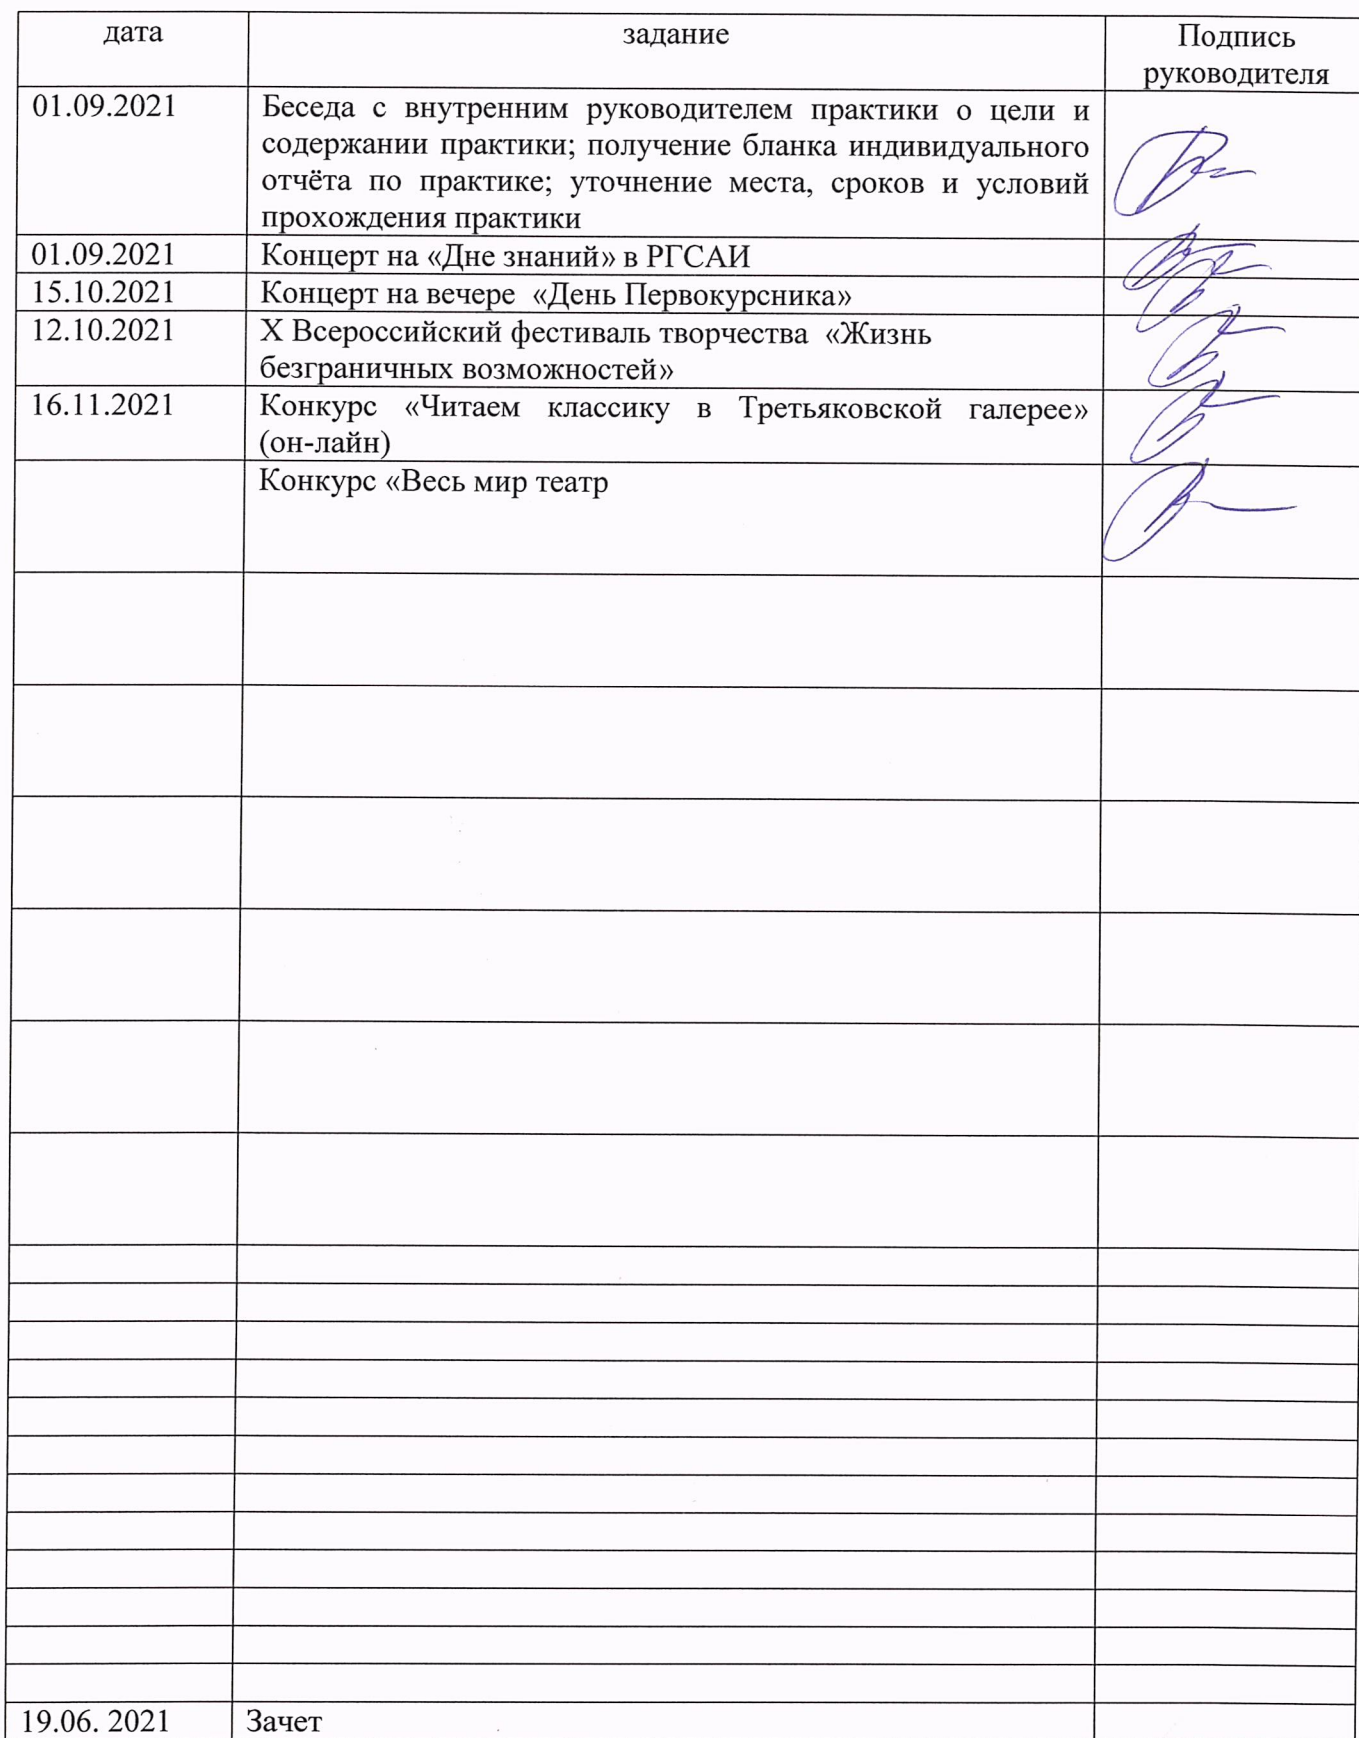 дата
задание
Подпись
руководителя
01.09.2021
Беседа с внутренним руководителем практики о цели и
содержании практики; получение бланка индивидуального
отчёта по практике; уточнение места, сроков и условий
прохождения практики
01.09.2021
Концерт на «Дне знаний» в РГСАИ
15.10.2021
Концерт на вечере «День Первокурсника»
12.10.2021
X Всероссийский фестиваль творчества «Жизнь
безграничных возможностей»
16.11.2021
Конкурс «Читаем классику в Третьяковской галерее»
(он-лайн)
Конкурс «Весь мир театр
19.06. 2021
Зачет